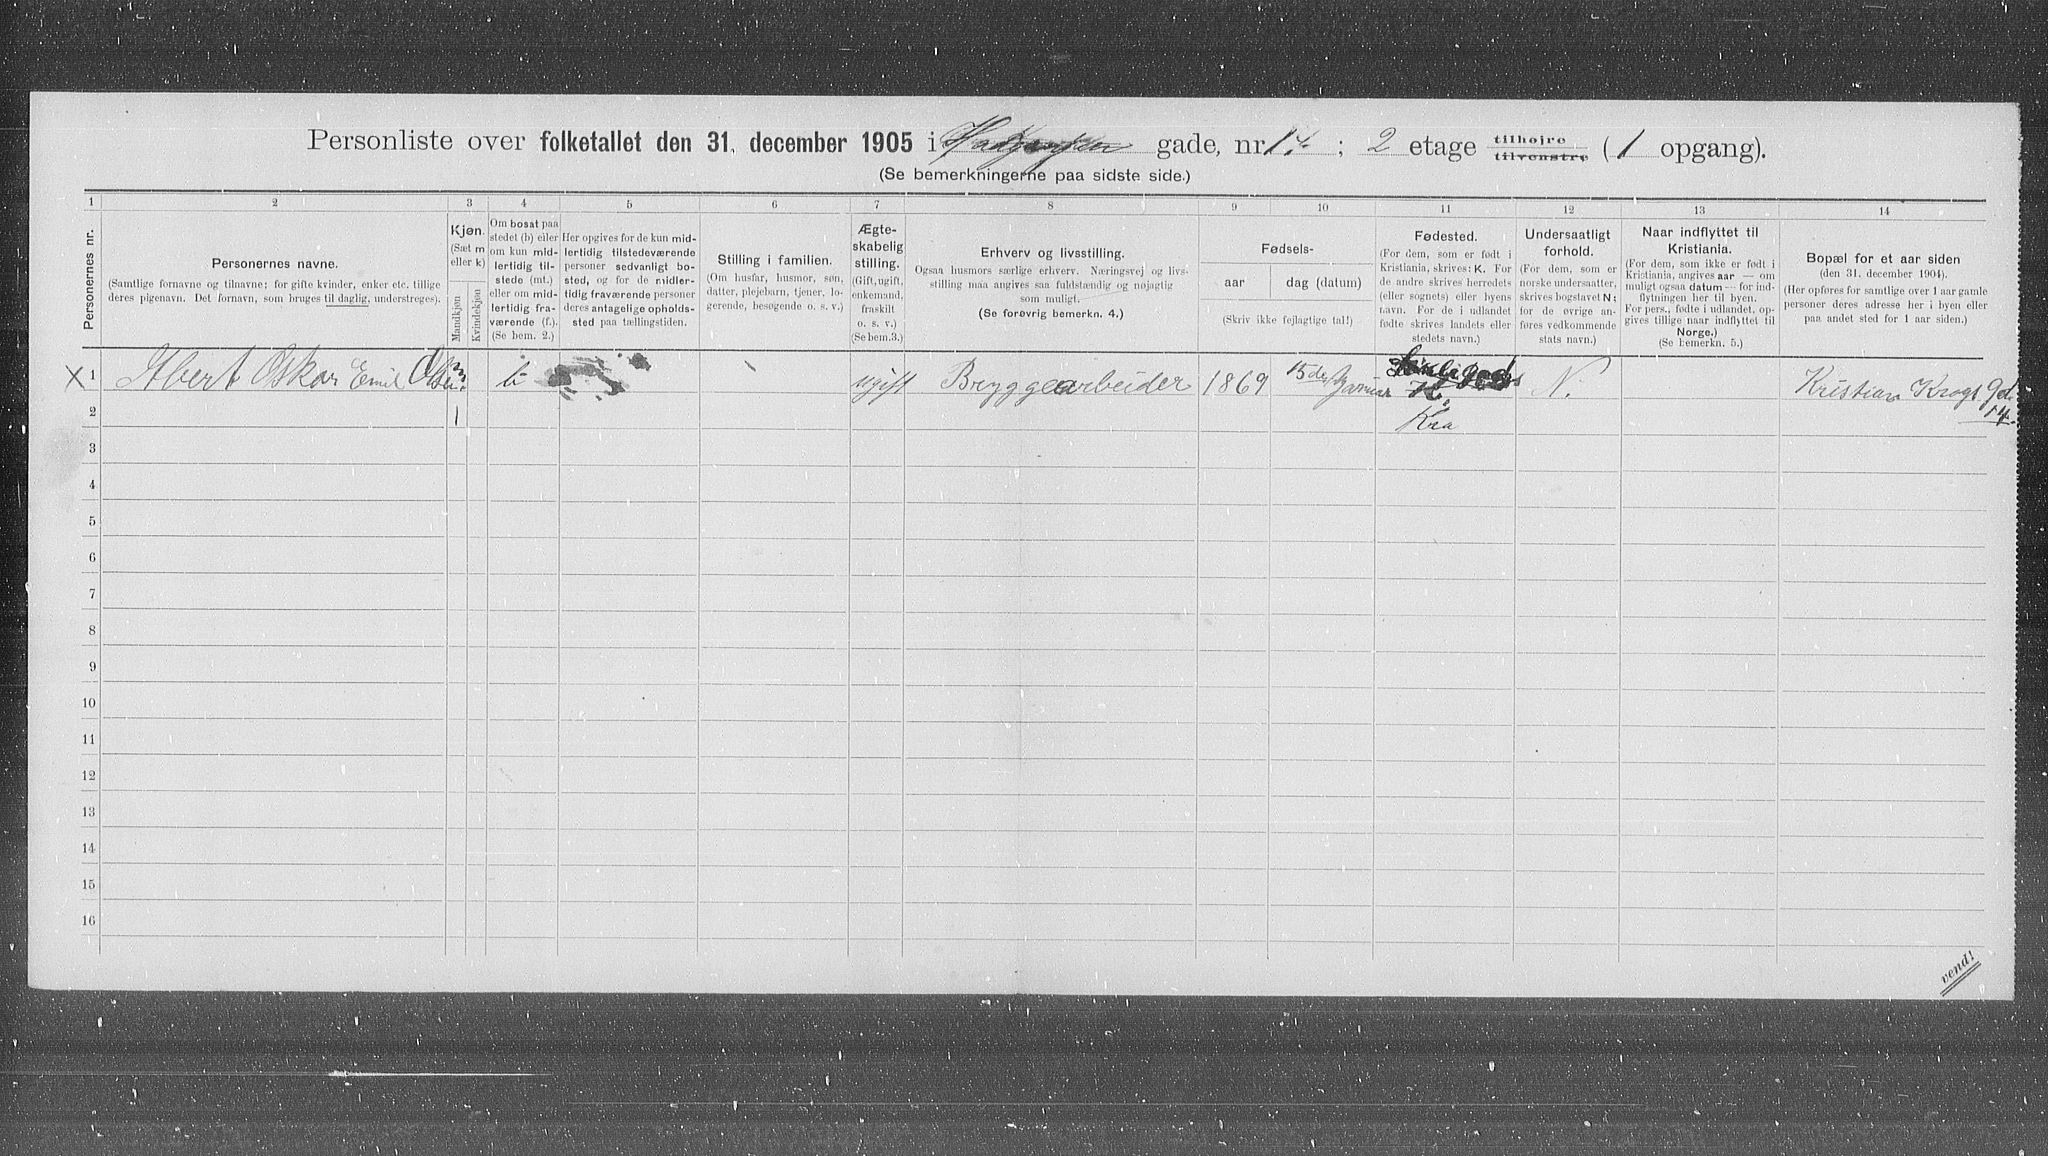 Personliste over folketallet den 31. december 1905 i gade, nr 14 ; 2 etage tilhøjre tilvenstre (1 opgang).
(Se bemerkningerne paa sidste side.)
1 2 3 4 5 6 7 8 9 10 11 12 13 14
Personernes nr.
Personernes navne.
(Samtlige fornavne og tilnavne; for gifte kvinder, enker etc. tillige
deres pigenavn. Det fornavn, som bruges til daglig, understreges).
Kjøn.
(Sæt m
eller k)
Mandkjøn
Kvindekjøn
Om bosat paa
stedet (b) eller
om kun mid-
lertidig til-
stede (mt.)
eller om mid-
lertidig fra-
værende (f.).
(Se bem. 2.)
Her opgives for de kun mid-
lertidig tilstedeværende
personer sedvanligt bo-
sted, og for de midler-
tidig fraværende personer
deres antagelige opholds-
sted paa tællingstiden.
Stilling i familien.
(Om husfar, husmor, søn,
datter, plejebarn, tjener, lo-
gerende, besøgende o. s. v.)
Ægte-
skabelig
stilling.
(Gift, ugift,
enkemand,
fraskilt
o. s. v.)
(Se bem.3.)
Erhverv og livsstilling.
Ogsaa husmors særlige erhverv. Næringsvej og livs-
stilling maa angives saa fuldstændig og nøjagtig
som muligt.
(Se forøvrig bemerkn. 4.)
Fødsels-
aar
dag (datum)
(Skriv ikke fejlagtige tal!)
Fødested.
(For dem, som er født i
Kristiania, skrives: K. For
de andre skrives herredets
(eller sognets) eller byens
navn. For de i udlandet
fødte skrives landets eller
stedets navn.)
Undersaatligt
forhold.
(For dem, som er
norske undersaatter,
skrives bogstavet N;
for de øvrige an-
føres vedkommende
stats navn.)
Naar indflyttet til
Kristiania.
(For dem, som ikke er født i
Kristiania, angives aar — om
muligt ogsaa datum — for ind-
flytningen her til byen.
For pers., fødte i udlandet, op-
gives tillige naar indflyttet til
Norge.)
(Se bemerkn. 5.)
Bopæl for et aar siden
(den 31. december 1904).
(Her opføres for samtlige over 1 aar gamle
personer deres adresse her i byen eller
paa andet sted for 1 aar siden.)
X 1 Albert Oskar Emil Olsen m. b ugift Bryggearbeider 1869 15de Januar K. N. Kristian Krogs gd.
14.
2 1 Kra
3
4
5
6
7
8
9
10
11
12
13
14
15
16
vend!